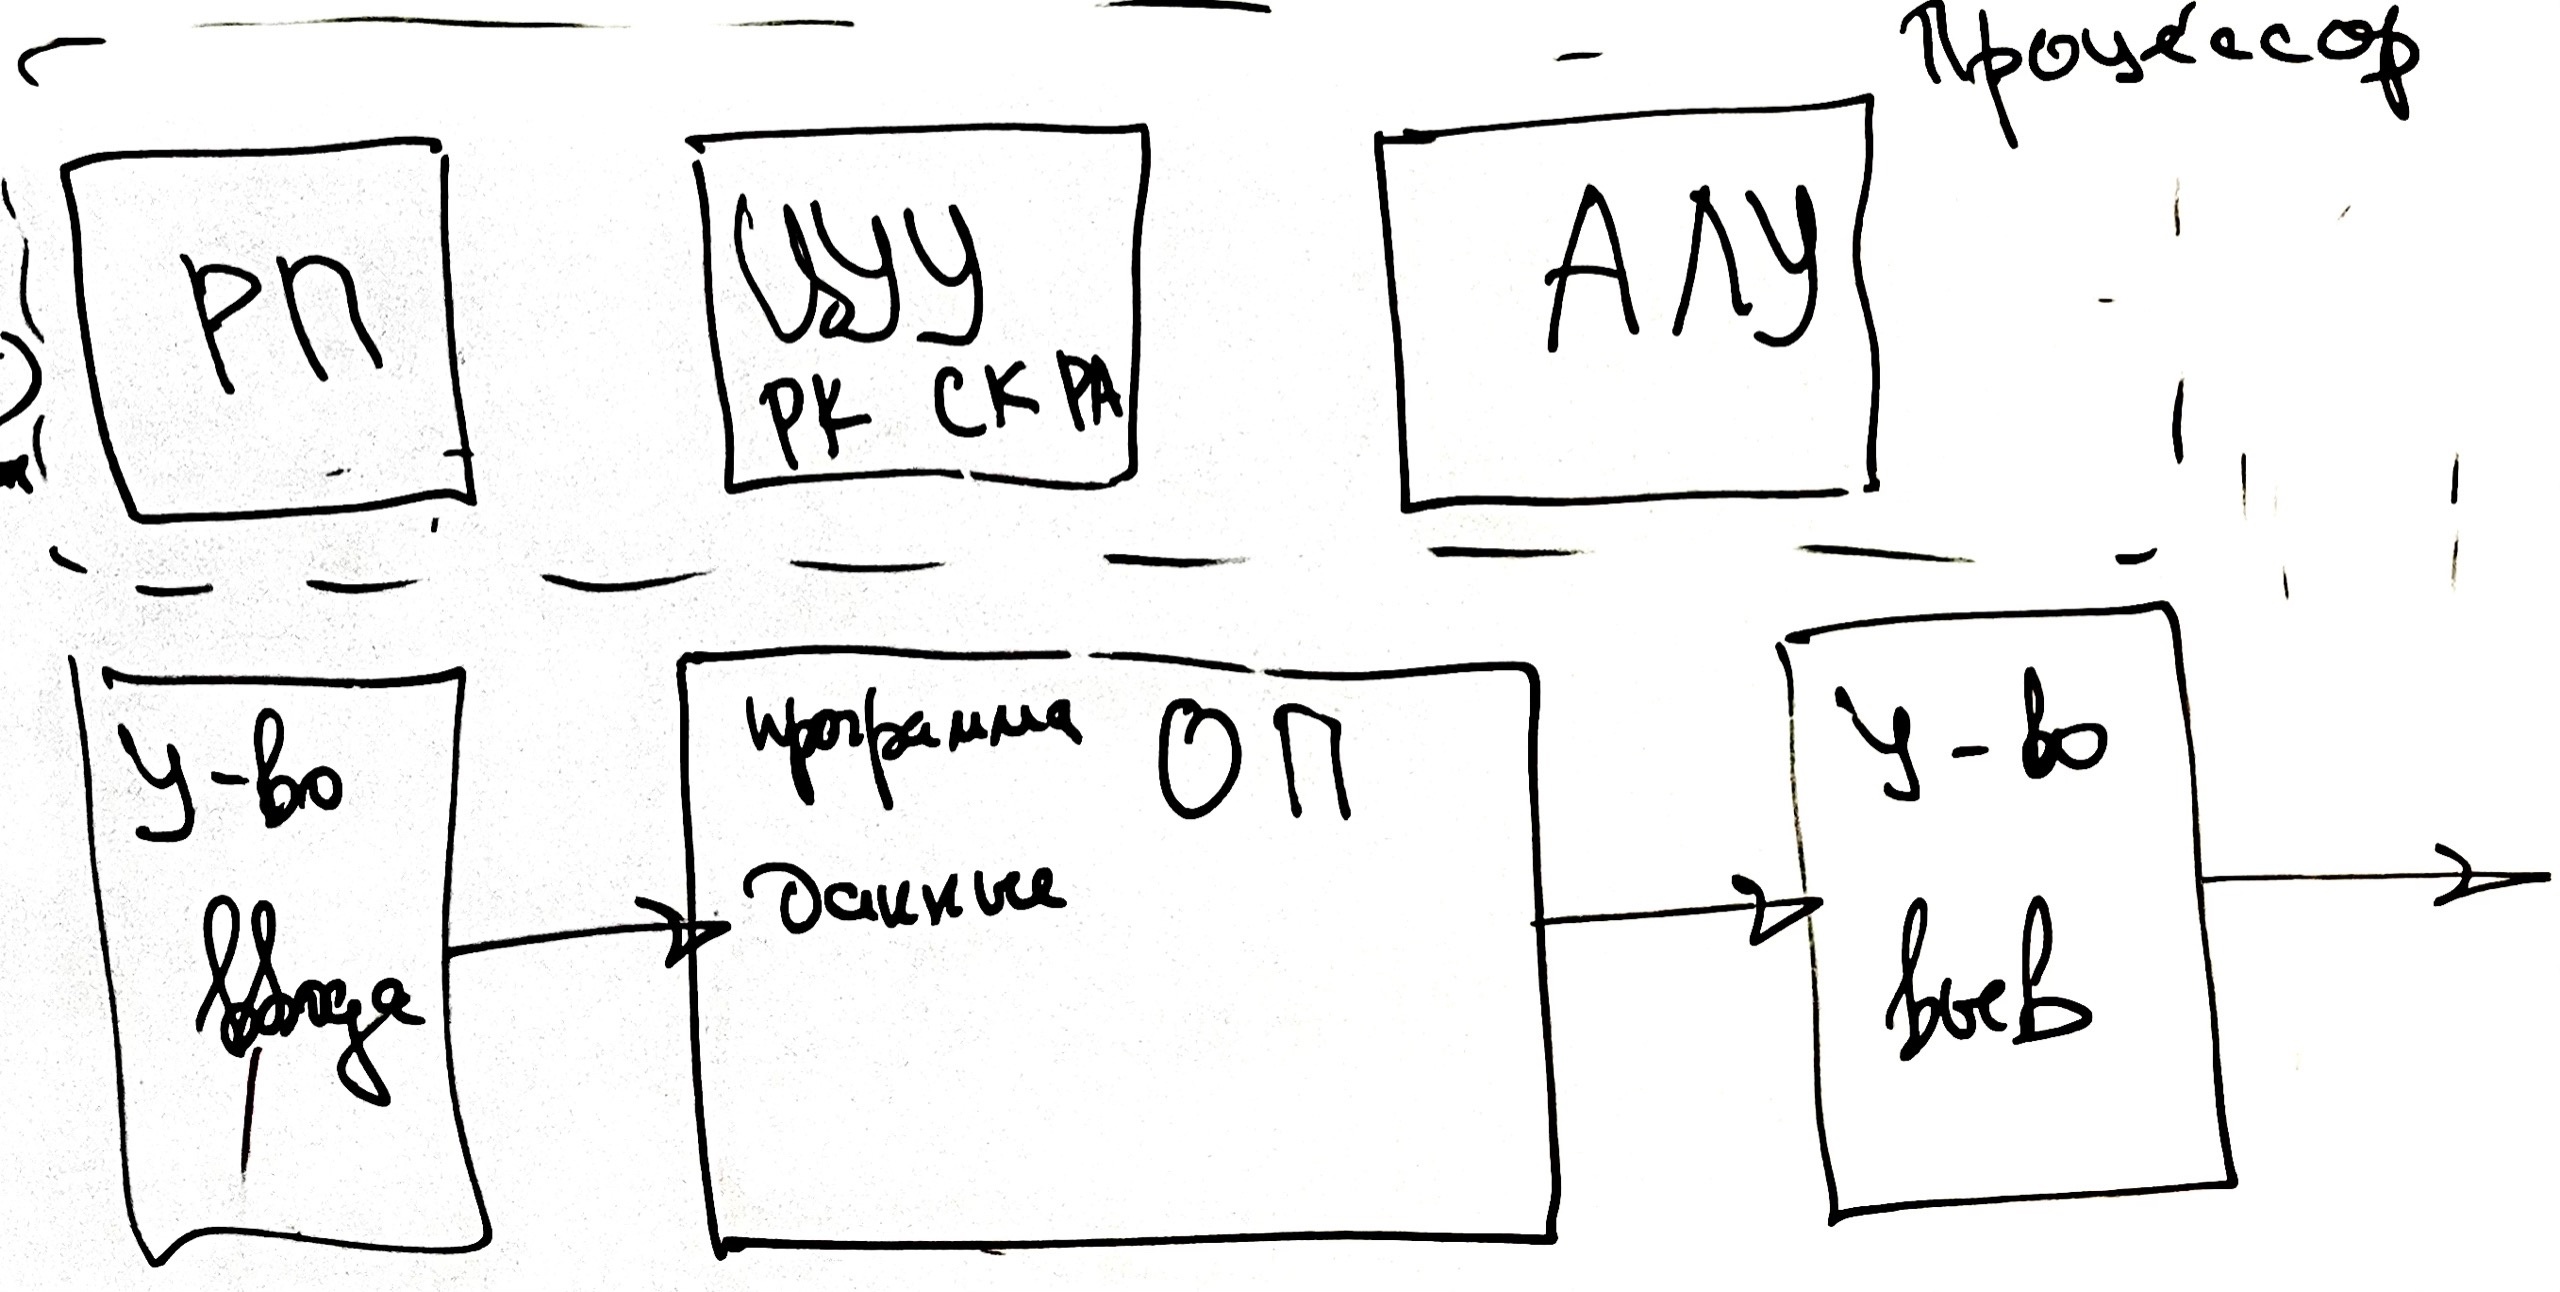 Процессор
РП
ЦУУ
РК СК РА
АЛУ
У-во
Ввода
программа ОП
Данные
У-во